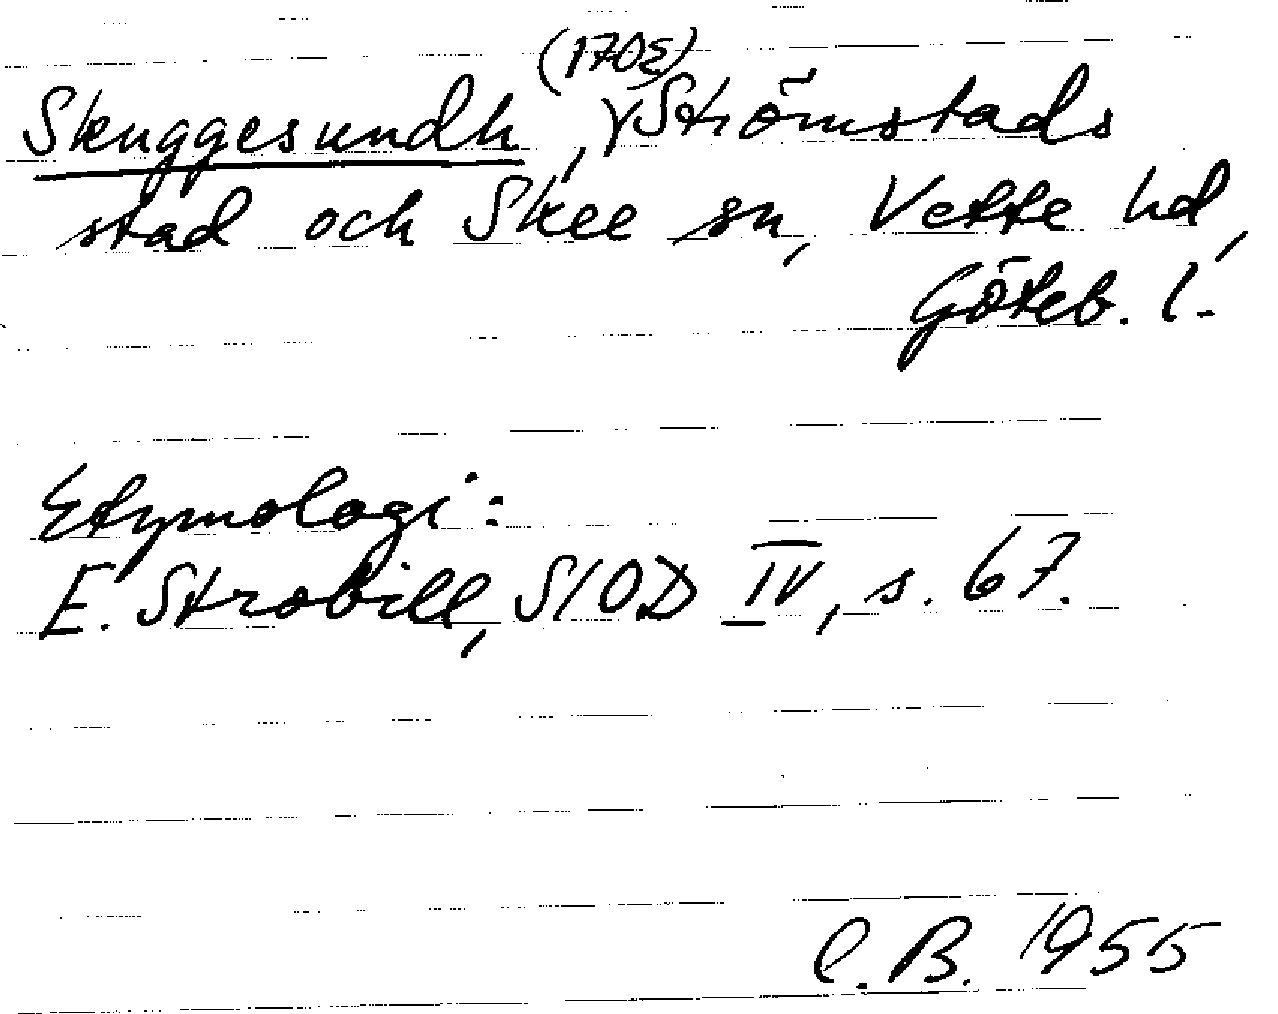 Skuggesundh (1705), Strömstads
stad och Skee sn, Vette hd,
Göteb. l.
Etymologi:
E. Strobill, SIOD IV, s. 67.
C. B. 1955